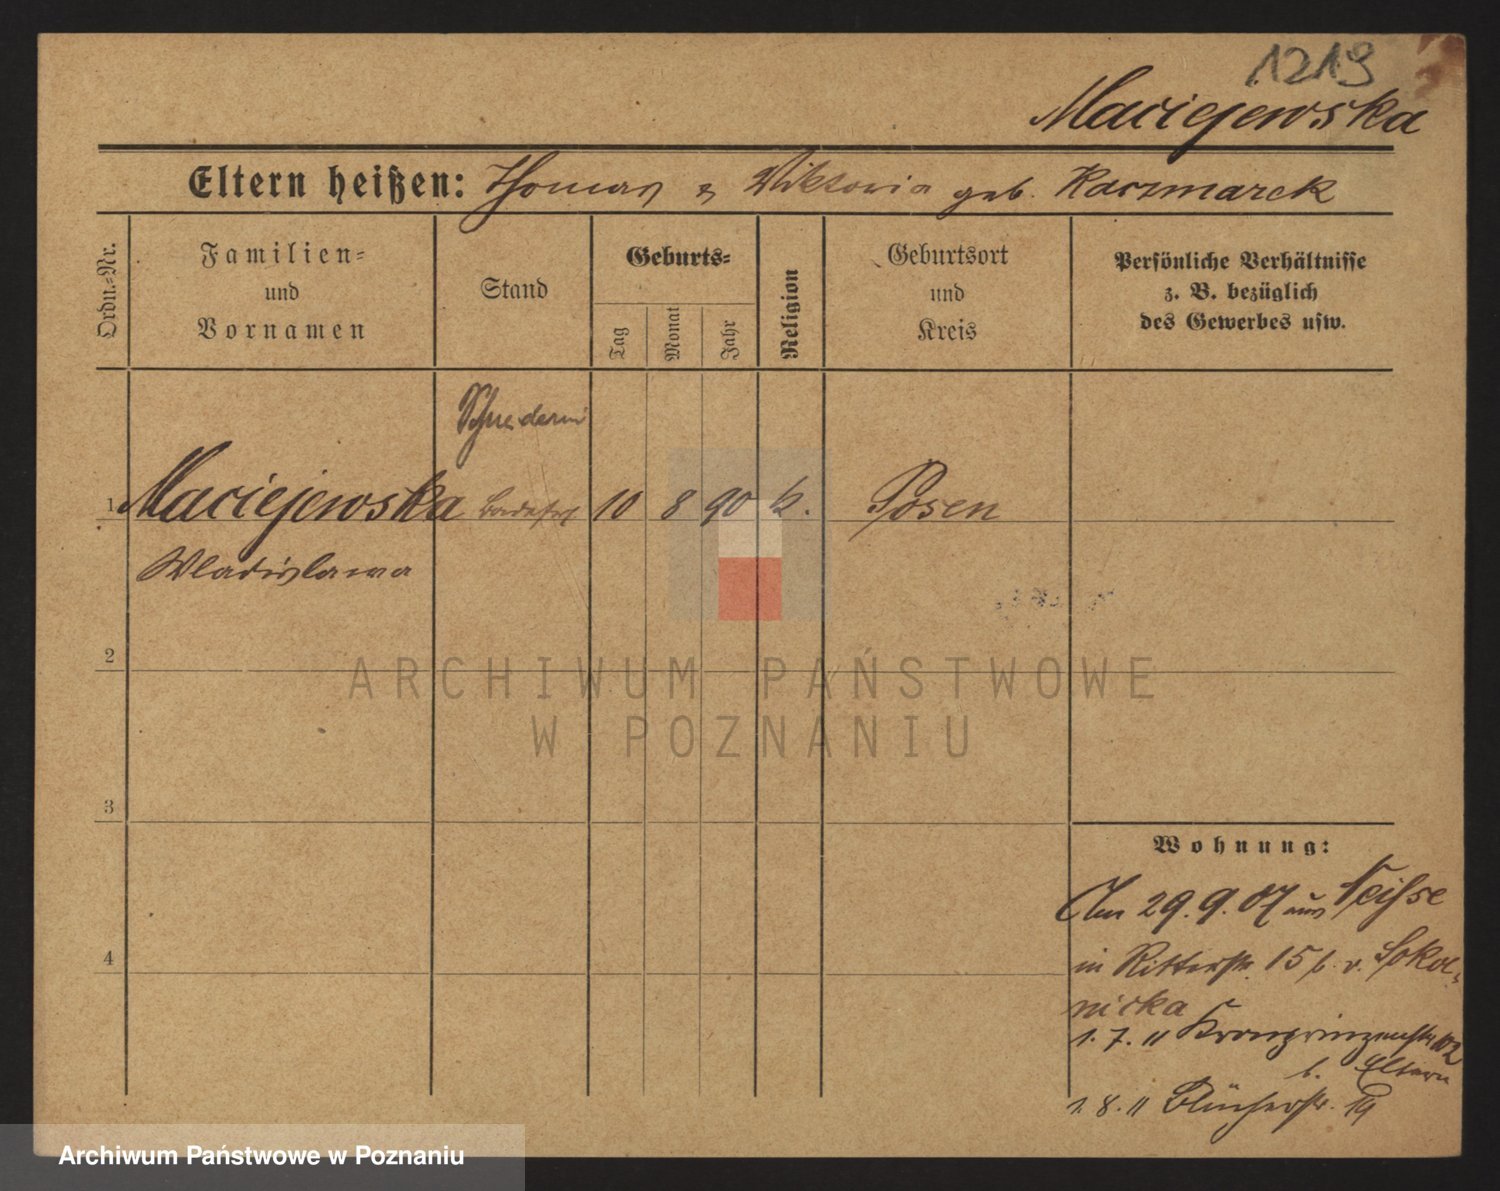 1219
Maciejewska
Eltern heißen: Thomas & Viktoria geb. Kaczmarek
Ordn.-Nr.
Familien-
und
Vornamen
Stand
Geburts-
Tag
Monat
Jahr
Religion
Geburtsort
und
Kreis
Persönliche Verhältnisse
z. B. bezüglich
des Gewerbes usw.
Schneiderin
1 Maciejewska 10 8 90 k. Posen
Wladislawa
2
ARCHIWUM PAŃSTWOWE
W POZNANIU
3
Wohnung:
Am 29.9.07 aus Neisse
4
in Ritterstr. 15 b. v. Sokol-
nicka
1. 7. 11 Kronprinzenstr 102
b. Eltern
1. 8. 11 Blücherstr. 19
Archiwum Państwowe w Poznaniu